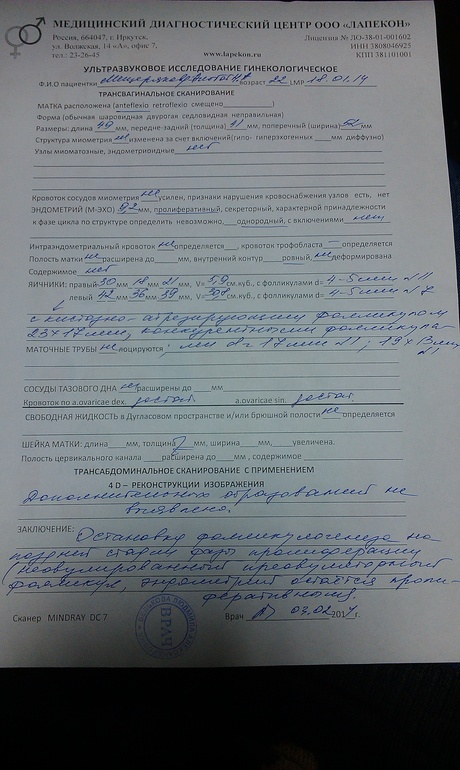 МЕДИЦИНСКИЙ ДИАГНОСТИЧЕСКИЙ ЦЕНТР ООО «ЛАПЕКОН»
Россия, 664047, г. Иркутск. Лицензия № ЛО-38-01-001602
ул. Волжская, 14 «А», офис 7, ИНН 3808046925
тел.: 23-26-45 www.lapekon.ru КПП 381101001
УЛЬТРАЗВУКОВОЕ ИССЛЕДОВАНИЕ ГИНЕКОЛОГИЧЕСКОЕ
Ф.И.О пациентки возраст 22 LMP 18.01.14
ТРАНСВАГИНАЛЬНОЕ СКАНИРОВАНИЕ
МАТКА расположена (anteflexio retroflexio смещено )
Форма (обычная шаровидная двурогая седловидная неправильная)
Размеры: длина 49 мм, передне-задний (толщина) 41 мм, поперечный (ширина) 52 мм
Структура миометрия не изменена за счет включений (гипо- гиперэхогенных мм диффузно)
Узлы миоматозные, эндометриоидные нет
Кровоток сосудов миометрия не усилен, признаки нарушения кровоснабжения узлов есть, нет
ЭНДОМЕТРИЙ (М-ЭХО) 9,2 мм, пролиферативный, секреторный, характер принадлежности
к фазе цикла по структуре определить невозможно, однородный, с включениями нет
Интраэндометриальный кровоток не определяется , кровоток трофобласта — определяется
Полость матки не расширена до мм, внутренний контур ровный, не деформирована
Содержимое нет
ЯИЧНИКИ: правый 30 мм 18 мм 21 мм, V= 5,9 см.куб., с фолликулами d= 4-5 мм N 11
левый 42 мм 36 мм 39 мм, V= 30,8 см.куб., с фолликулами d= 4-5 мм N 7
с кистозно-атрезирующим фолликулом
23×17 мм, конкурентными фолликула-
МАТОЧНЫЕ ТРУБЫ не лоцируются ми d= 17 мм N1; 19×13 мм
N1
СОСУДЫ ТАЗОВОГО ДНА не расширены до мм
Кровоток по a.ovaricae dex. достат. a.ovaricae sin. достат.
СВОБОДНАЯ ЖИДКОСТЬ в Дугласовом пространстве и/или брюшной полости не определяется
ШЕЙКА МАТКИ: длина мм, толщина мм, ширина мм, увеличена.
Полость цервикального канала расширена до мм , содержимое
ТРАНСАБДОМИНАЛЬНОЕ СКАНИРОВАНИЕ С ПРИМЕНЕНИЕМ
4 D – РЕКОНСТРУКЦИИ ИЗОБРАЖЕНИЯ
Дополнительных образований не
выявлено.
ЗАКЛЮЧЕНИЕ: Остановка фолликулогенеза на
поздней стадии фазы пролиферации
(неовулированный преовуляторный
фолликул, эндометрий остается проли-
феративным.
Сканер MINDRAY DC-7 Врач 03.02 2014 г.
ВРАЧ